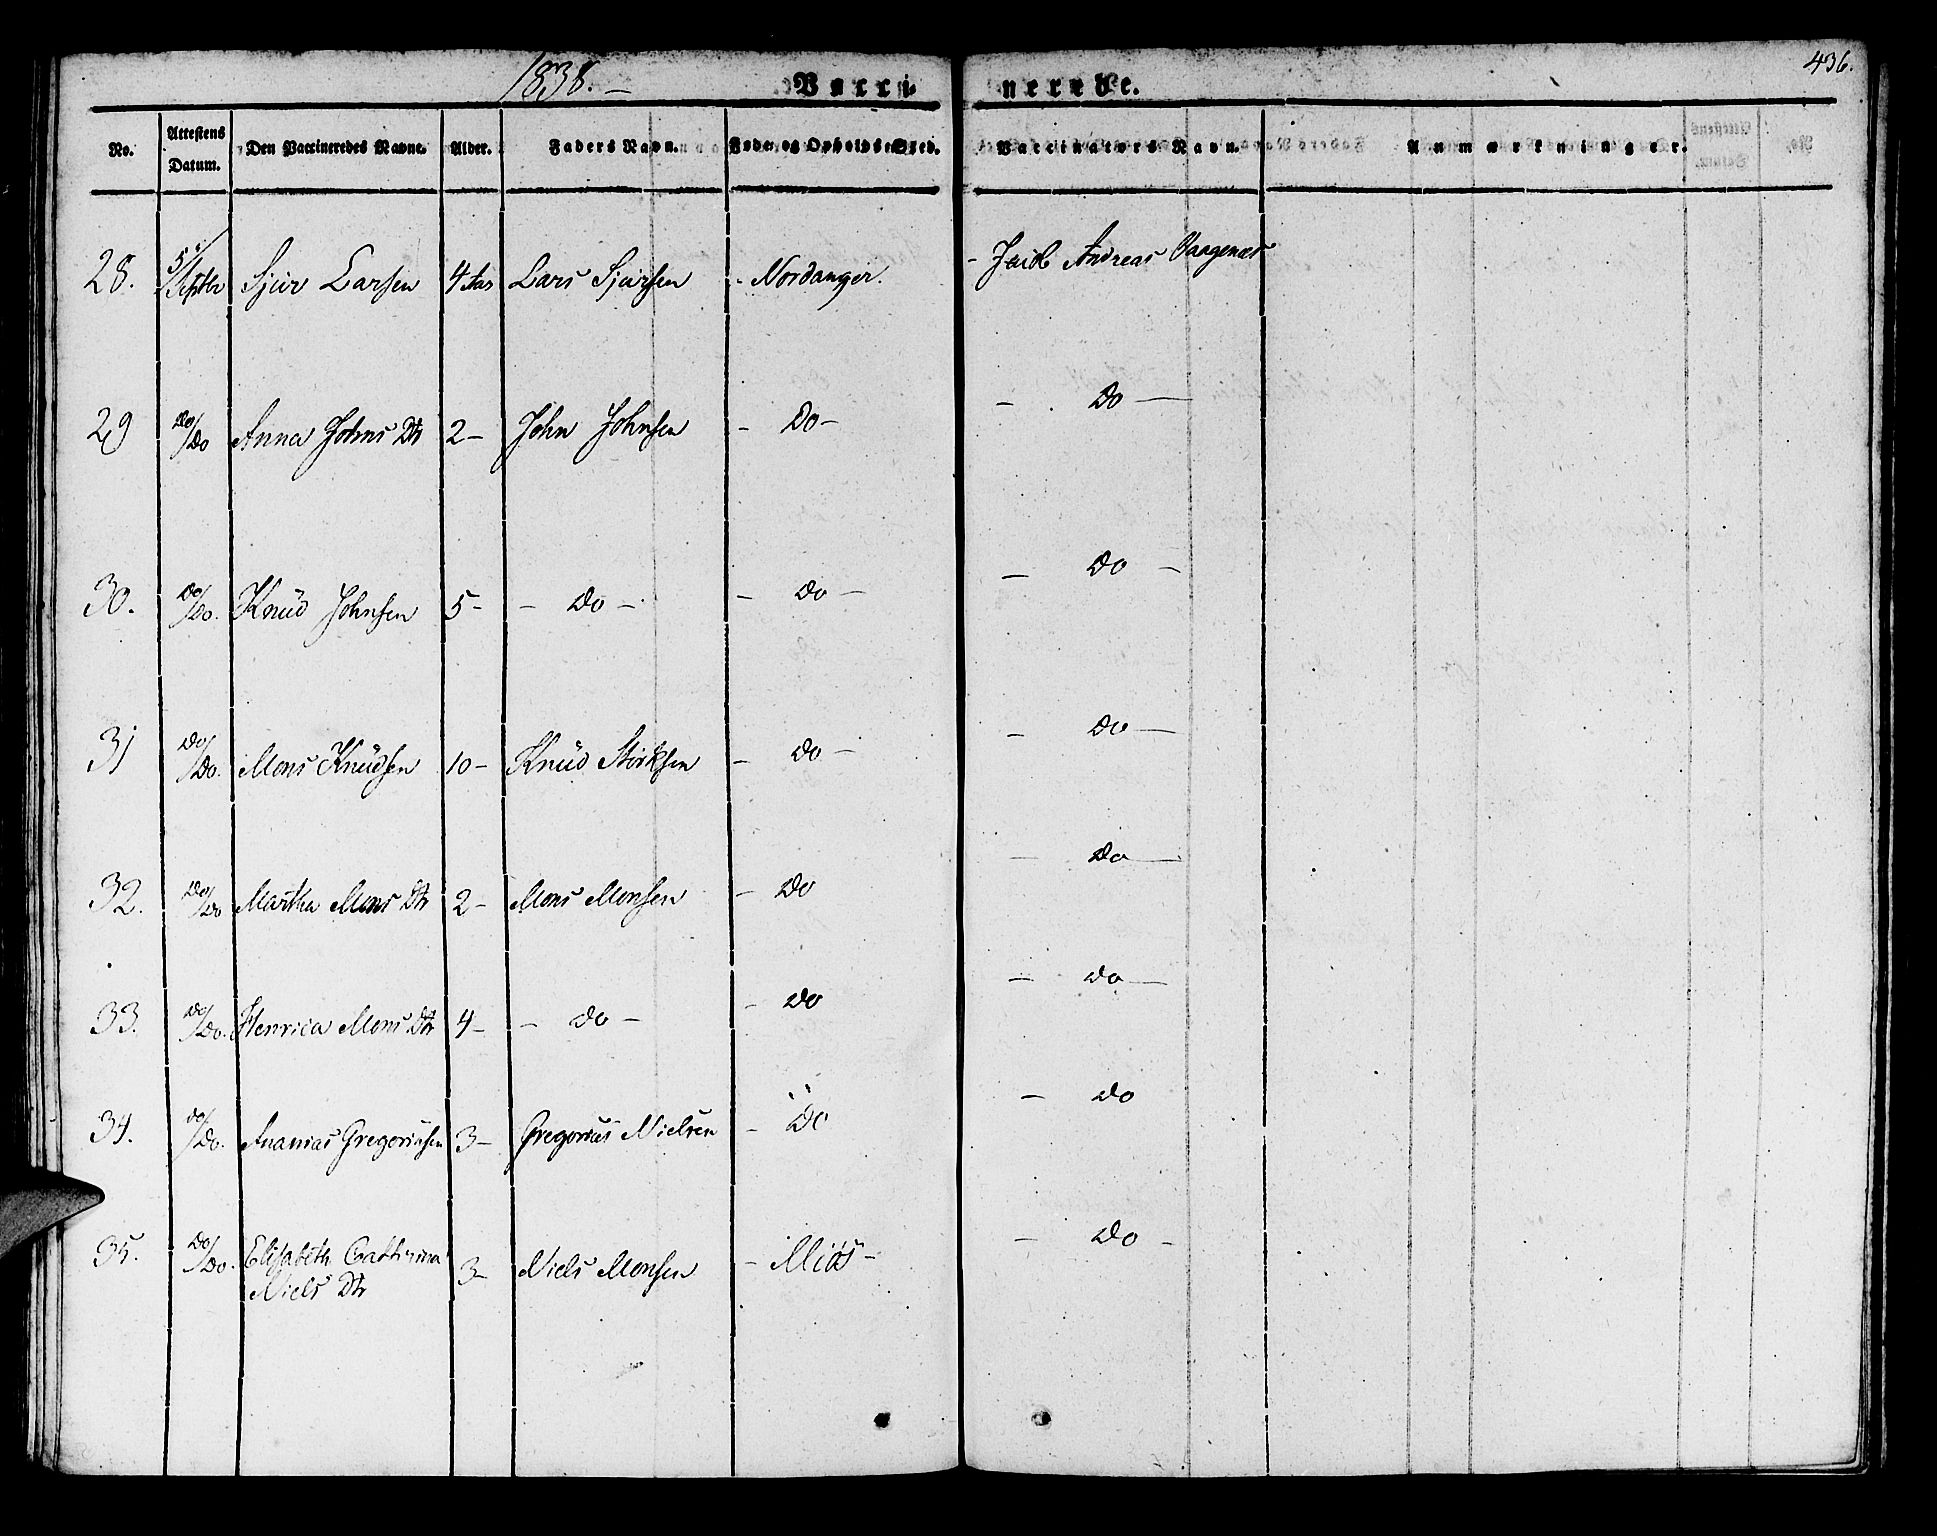 1838.
436.
Vacci
nerede.
No.
Attestens Datum.
Den Vaccineredes Navne.
Alder.
Faders Navn.
Føde- og Opholds-Sted.
Vaccinateurs Navn.
Anmærkninger.
28. 5/Septbr Sjur Larsen 4 Aar Lars Sjursen - Nordanger. - Jacob Andreas
29 Do/Do Anna Johns Dtr 2 - John Johnsen - Do - - Do -
30. Do/Do. Knud Johnsen 5 - - Do - - Do - - Do -
31 Do/Do. Mons Knudsen 10 - Knud Størksen - Do - - Do -
32. Do/Do Martha Mons Dtr 2 - Mons Monsen - Do - Do -
33. Do/Do. Henrica Mons Dtr 4 - - Do - - Do - Do -
34. Do/Do. Ananias Gregoriusen 3 - Gregorius Nielsen - Do - Do
35. Do/Do. Elisabeth Cathrina 3 - Niels Monsen - Miøs - - Do -
Niels Dtr